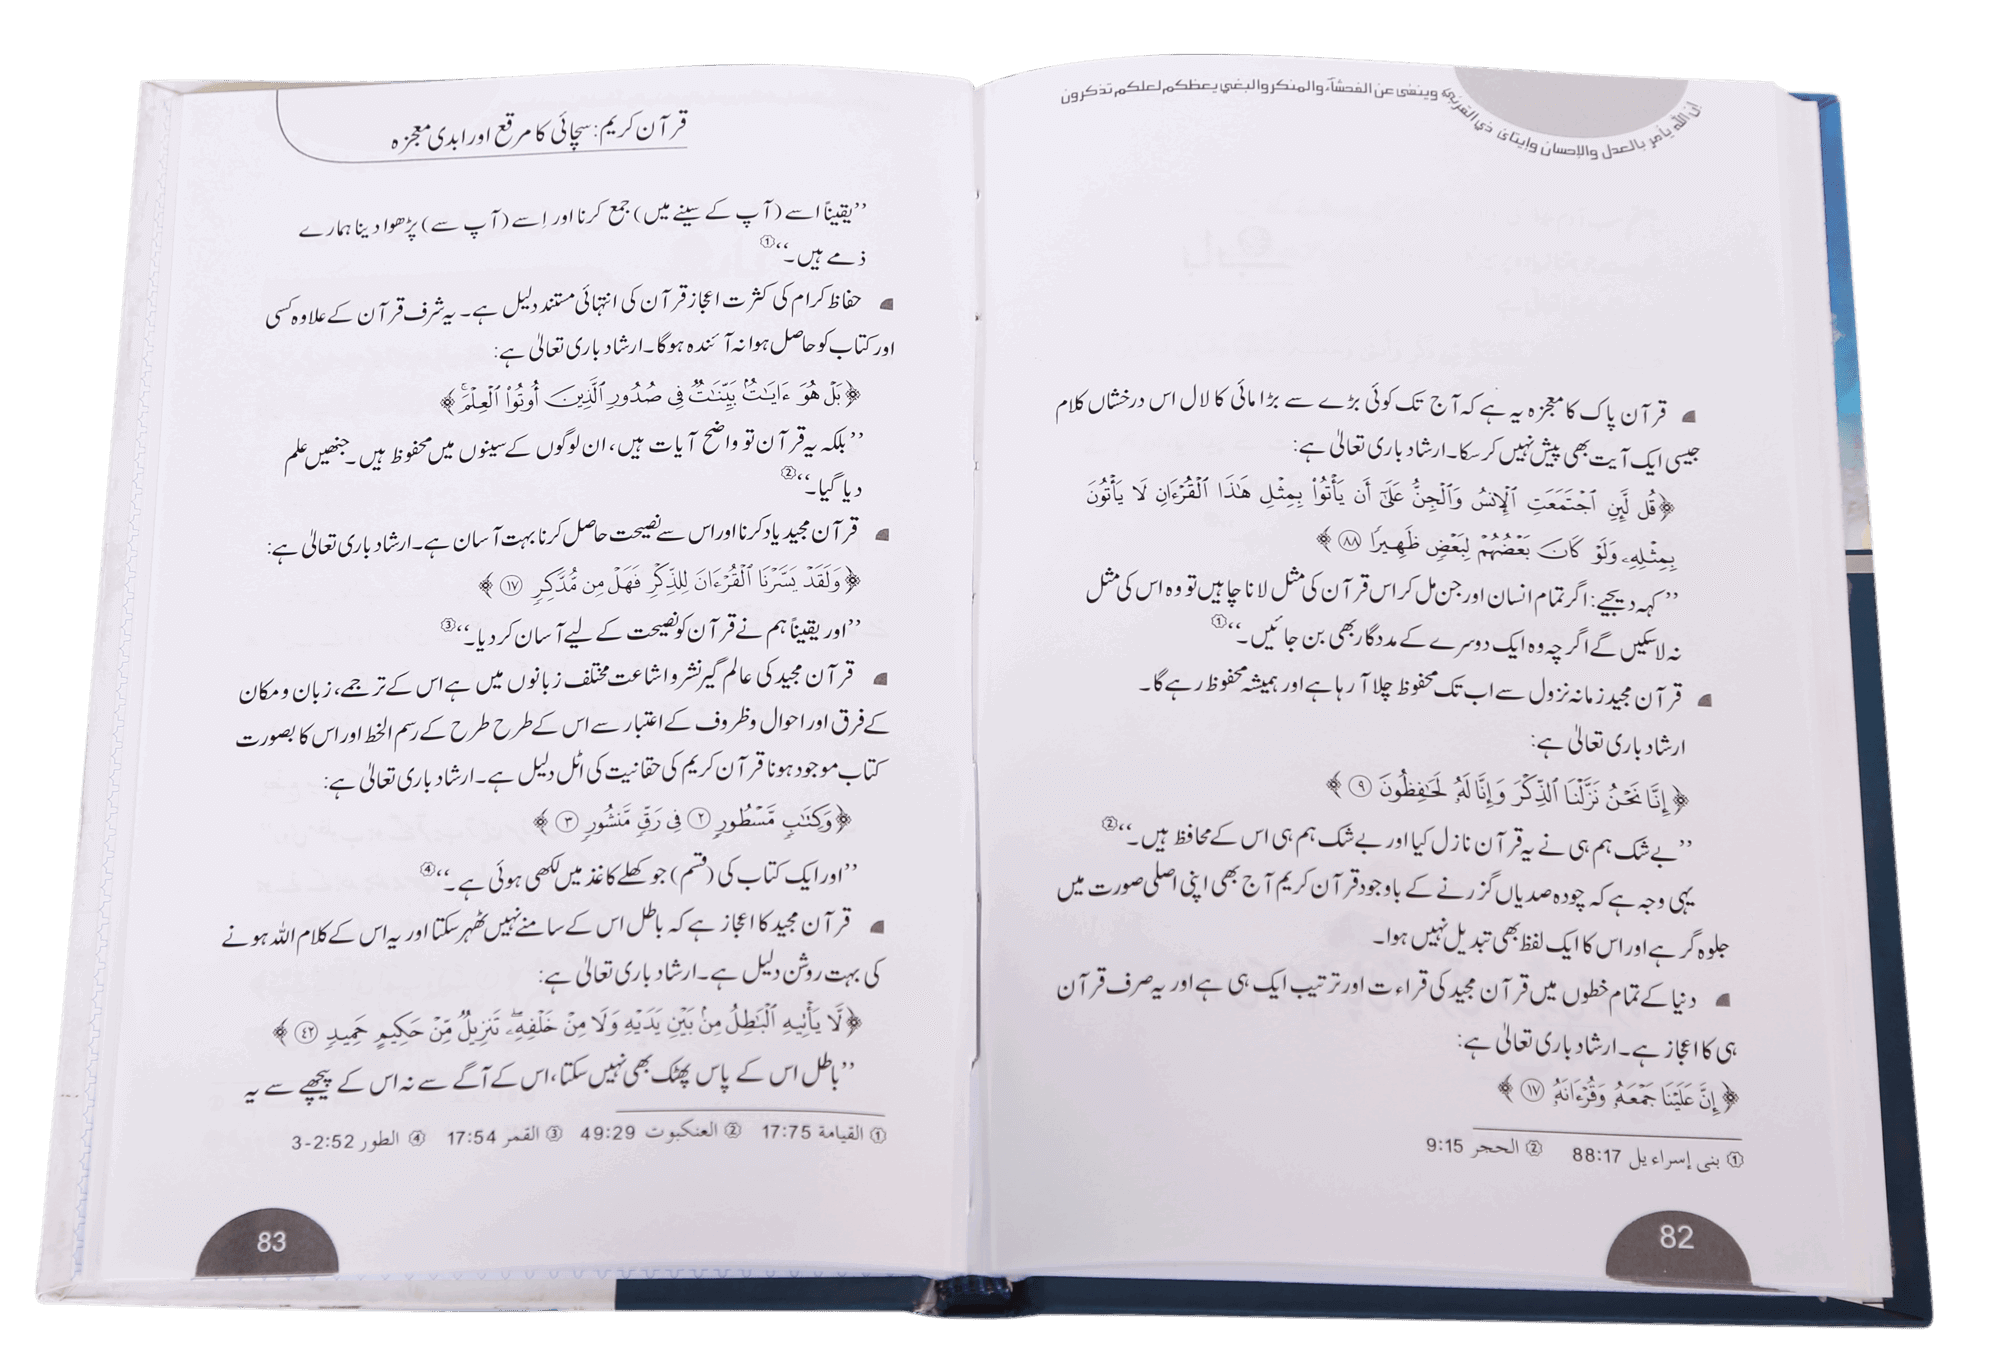 إن الله يأمر بالعدل والإحسان وإيتائ ذي القربى وينهى عن الفحشاء والمنكر والبغي يعظكم لعلكم تذكرون
قرآن پاک کا معجزہ یہ ہے کہ آج تک کوئی بڑے سے بڑا مائی کا لال اس درخشاں کلام
جیسی ایک آیت بھی پیش نہیں کر سکا۔ ارشاد باری تعالیٰ ہے:
﴿قُل لَّئِنِ ٱجۡتَمَعَتِ ٱلۡإِنسُ وَٱلۡجِنُّ عَلَىٰٓ أَن يَأۡتُواْ بِمِثۡلِ هَٰذَا ٱلۡقُرۡءَانِ لَا يَأۡتُونَ
بِمِثۡلِهِۦ وَلَوۡ كَانَ بَعۡضُهُمۡ لِبَعۡضٖ ظَهِيرٗا ٨٨﴾
’’کہہ دیجیے: اگر تمام انسان اور جن مل کر اس قرآن کی مثل لانا چاہیں تو وہ اس کی مثل
نہ لا سکیں گے اگرچہ وہ ایک دوسرے کے مددگار بھی بن جائیں۔‘‘①
قرآن مجید زمانہ نزول سے اب تک محفوظ چلا آ رہا ہے اور ہمیشہ محفوظ رہے گا۔
ارشاد باری تعالیٰ ہے:
﴿إِنَّا نَحۡنُ نَزَّلۡنَا ٱلذِّكۡرَ وَإِنَّا لَهُۥ لَحَٰفِظُونَ ٩﴾
’’بے شک ہم ہی نے یہ قرآن نازل کیا اور بے شک ہم ہی اس کے محافظ ہیں۔‘‘②
یہی وجہ ہے کہ چودہ صدیاں گزرنے کے باوجود قرآن کریم آج بھی اپنی اصلی صورت میں
جلوہ گر ہے اور اس کا ایک لفظ بھی تبدیل نہیں ہوا۔
دنیا کے تمام خطوں میں قرآن مجید کی قراءت اور ترتیب ایک ہی ہے اور یہ صرف قرآن
ہی کا اعجاز ہے۔ ارشاد باری تعالیٰ ہے:
﴿إِنَّ عَلَيۡنَا جَمۡعَهُۥ وَقُرۡءَانَهُۥ ١٧﴾
① بنی إسراءيل 88:17 ② الحجر 9:15
82
قرآن کریم: سچائی کا مرقع اور ابدی معجزہ
’’یقیناً اسے (آپ کے سینے میں) جمع کرنا اور اِسے (آپ سے) پڑھوا دینا ہمارے
ذمے ہیں۔‘‘①
حفاظ کرام کی کثرت اعجاز قرآن کی انتہائی مستند دلیل ہے۔ یہ شرف قرآن کے علاوہ کسی
اور کتاب کو حاصل ہوا نہ آئندہ ہوگا۔ ارشاد باری تعالیٰ ہے:
﴿بَلۡ هُوَ ءَايَٰتُۢ بَيِّنَٰتٞ فِي صُدُورِ ٱلَّذِينَ أُوتُواْ ٱلۡعِلۡمَۚ﴾
’’بلکہ یہ قرآن تو واضح آیات ہیں، ان لوگوں کے سینوں میں محفوظ ہیں۔ جنھیں علم
دیا گیا۔‘‘②
قرآن مجید یاد کرنا اور اس سے نصیحت حاصل کرنا بہت آسان ہے۔ ارشاد باری تعالیٰ ہے:
﴿وَلَقَدۡ يَسَّرۡنَا ٱلۡقُرۡءَانَ لِلذِّكۡرِ فَهَلۡ مِن مُّدَّكِرٖ ١٧﴾
’’اور یقیناً ہم نے قرآن کو نصیحت کے لیے آسان کر دیا۔‘‘③
قرآن مجید کی عالم گیر نشر و اشاعت مختلف زبانوں میں ہے اس کے ترجمے، زبان و مکان
کے فرق اور احوال و ظروف کے اعتبار سے اس کے طرح طرح کے رسم الخط اور اس کا بصورت
کتاب موجود ہونا قرآن کریم کی حقانیت کی اٹل دلیل ہے۔ ارشاد باری تعالیٰ ہے:
﴿وَكِتَٰبٖ مَّسۡطُورٖ ٢ فِي رَقّٖ مَّنشُورٖ ٣﴾
’’اور ایک کتاب کی (قسم) جو کھلے کاغذ میں لکھی ہوئی ہے۔‘‘④
قرآن مجید کا اعجاز ہے کہ باطل اس کے سامنے نہیں ٹھہر سکتا اور یہ اس کے کلام اللہ ہونے
کی بہت روشن دلیل ہے۔ ارشاد باری تعالیٰ ہے:
﴿لَّا يَأۡتِيهِ ٱلۡبَٰطِلُ مِنۢ بَيۡنِ يَدَيۡهِ وَلَا مِنۡ خَلۡفِهِۦۖ تَنزِيلٞ مِّنۡ حَكِيمٍ حَمِيدٖ ٤٢﴾
’’باطل اس کے پاس پھٹک بھی نہیں سکتا، اس کے آگے سے نہ اس کے پیچھے سے یہ
① القيامة 17:75 ② العنكبوت 49:29 ③ القمر 17:54 ④ الطور 52:2-3
83